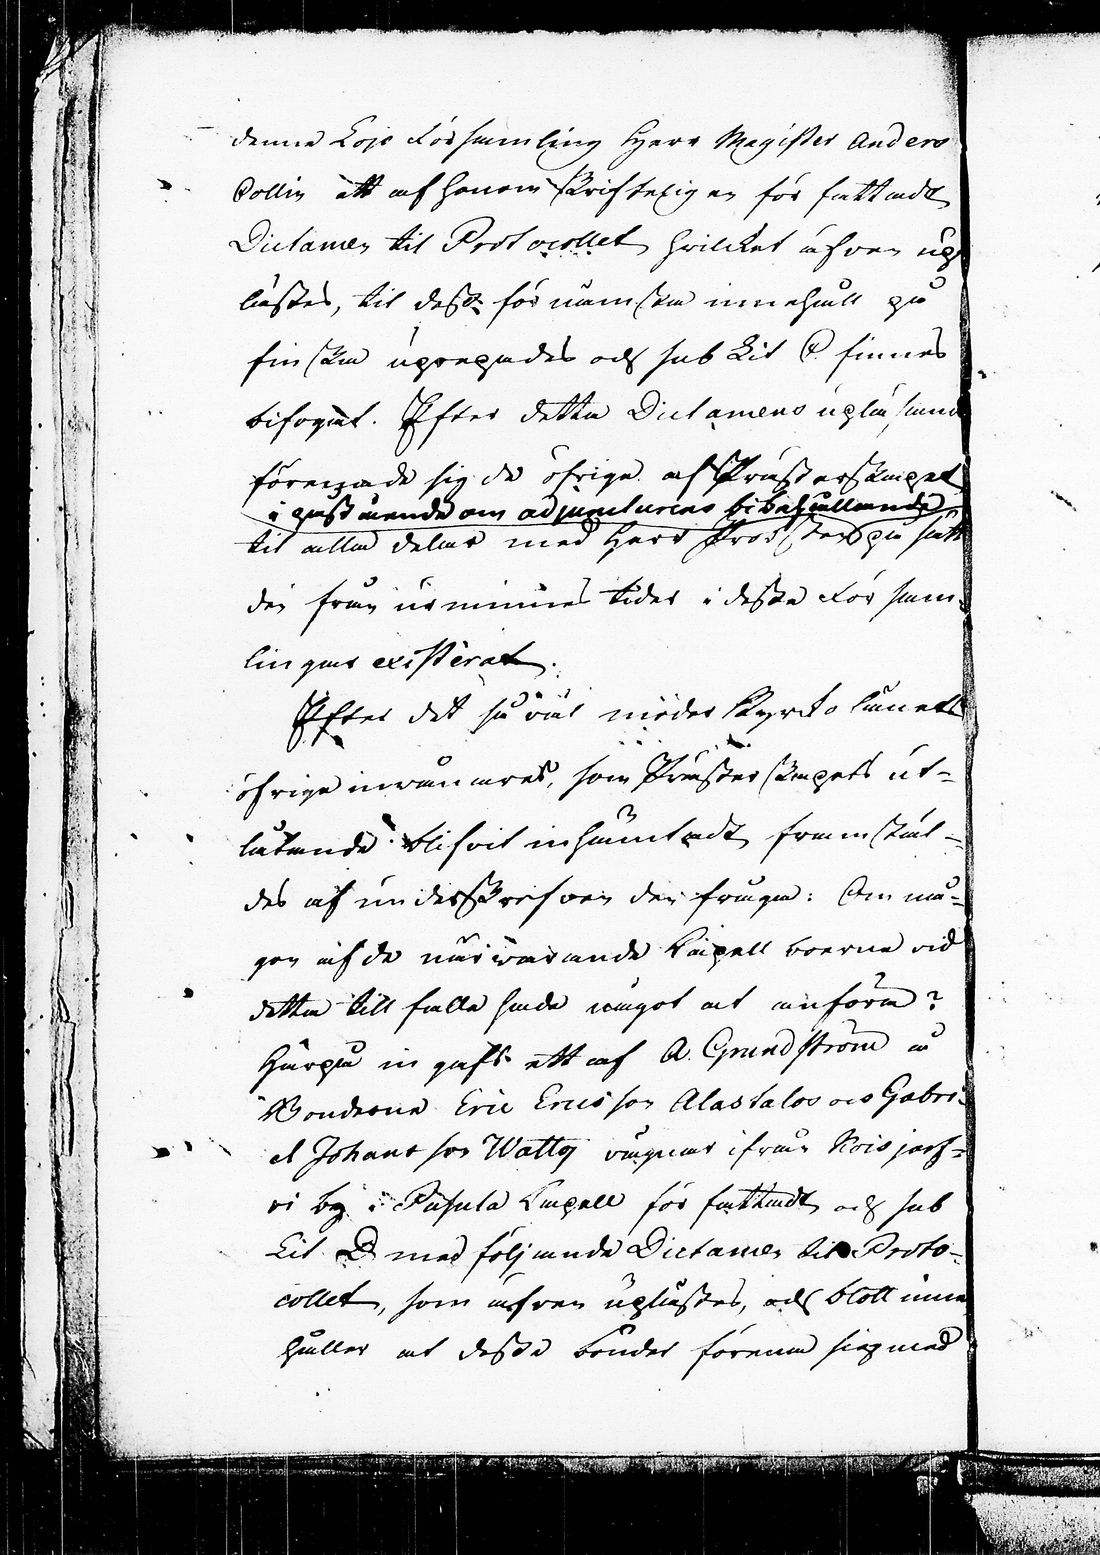 denna Lojo Församling Herr Magister Anders
Collin ett af honom skrifteligen författadt
Dictamen til Protocollet hvilcket äfven up
lästes, til dess förnämsta innehåll på
finska uprepades och sub Lit C. finnes
bifogat. Efter detta Dictamens upläsande
förenade sig de öfrige af Prästerskapet
i anseende om adjuncturens bibehållande
til alla delar med Herr Prosten på sätt
den från urminnes tider i dessa Församlingar
lingar existerat.
Efter det så väl möder Kyrko lånets
öfrige invånares, som Prästerskapets ut-
låtande blifvit inhämtadt framstäl-
des af underskrefven den frågan: Om nå-
gon af de närvarande Capell boerne vid
detta tillfälle hade något at anföra?
Härpå ingafs ett af A. Grundström å
Bonderne Eric Ericsson Alastalos och Gabri-
el Johansson Watty vägnar ifrån Kois jerf-
vi by i Pusula Capell författadt och sub
Lit D med följande Dictamen til Proto-
collet, som äfven uplästes, och blott inne
håller at dessa bönder förena sig med